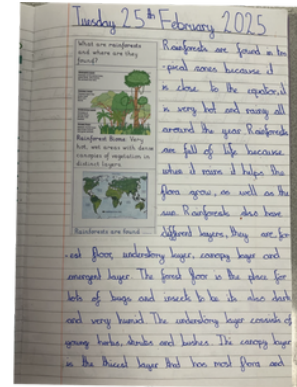 Tuesday 25th February 2025
What are rainforests
and where are they
found?
Rainforest Biome: Very
hot, wet areas with dense
canopies of vegetation in
distinct layers
Rainforests are found
Rainforests are found in tro
-pical zones because it
is close to the equator, it
is very hot and rainy all
around the year. Rainforests
are full of life because
when it rains it helps the
flora grow, as well as the
sun. Rainforests also have
different layers, they are for
-est floor, understory layer, canopy layer and
emergent layer. The forest floor is the place for
lots of bugs and insects to be its also dark
and very humid. The understory layer consists of
young herbs, shrubs and bushes. The canopy layer
is the thickest layer that has most flora and